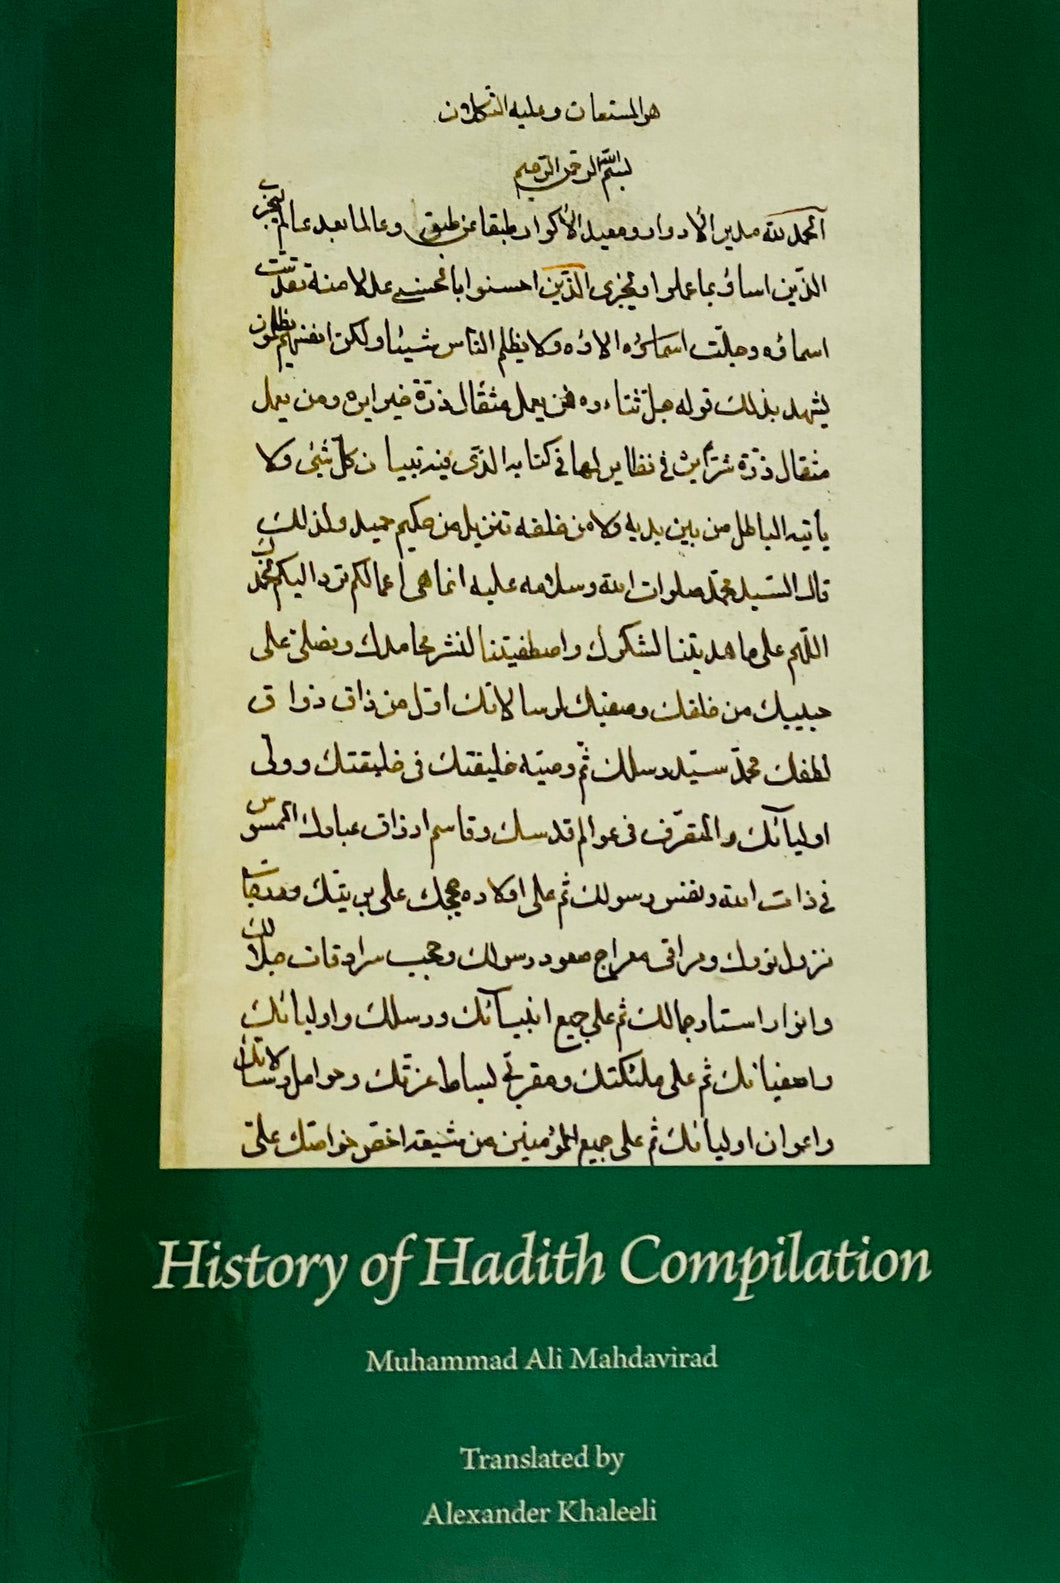 هو المستعان وعليه التكلان
بسم الله الرحمن الرحيم
الحمد لله مدير الادوار ومعيد الأكوار طبقا عن طبق وعالما بعد عالم ليجزي
الذين اساؤ بما عملوا ويجزي الذين احسنوا بالحسنى عدلا منه تقدست
اسماؤه وجلت الاؤه ولا يظلم الناس شيئا ولكن انفسهم يظلمون
يشهد بذلك قوله جل ثناءوه فمن يعمل مثقال ذرة خيرا يره ومن يعمل
مثقال ذرة شرا يره في نظاير لها في كتابه الذي فيه تبيان كل شئ ولا
يأتيه الباطل من بين يديه ولا من خلفه تنزيل من حكيم حميد ولذلك
قال السيد محمد صلوات الله وسلامه عليه انما هى اعمالكم ترد اليكم نحمدك
اللهم على ما هديتنا لشكرك واصطفيتنا لنشر محامدك ونصلى على
حبيبك من خلقك وصفيك لرسالاتك اول من ذاق ذواق
لطفك محمد سيد رسلك ثم وصيه خليفتك فى خليقتك وولى
اوليائك والمتصرف فى عوالم قدسك وقاسم ارزاق عبادك الممسوس
في ذات الله ونفس رسولك ثم على اولاده حججك على بريتك ومعدات
نزول نورك ومراقى معراج صعود رسولك وحجب سرادقات جلالك
وانوار استار جمالك ثم على جميع انبيائك ورسلك واوليائك
واصفيائك ثم على ملئكتك ومقربى بساط عزتك وحوامل رسالاتك
واعوان اوليائك ثم على جميع المؤمنين من شيعة اخص خواصك على
History of Hadith Compilation
Muhammad Ali Mahdavirad
Translated by
Alexander Khaleeli